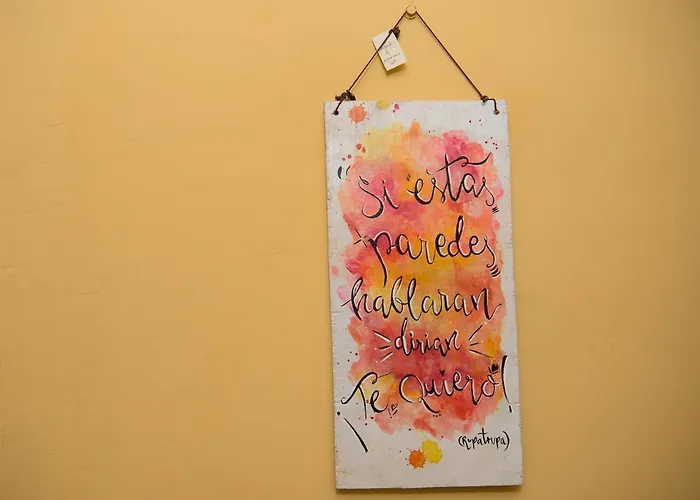 "Si estas
paredes
hablaran
dirian
¡Te Quiero!
(Rupatrupa)